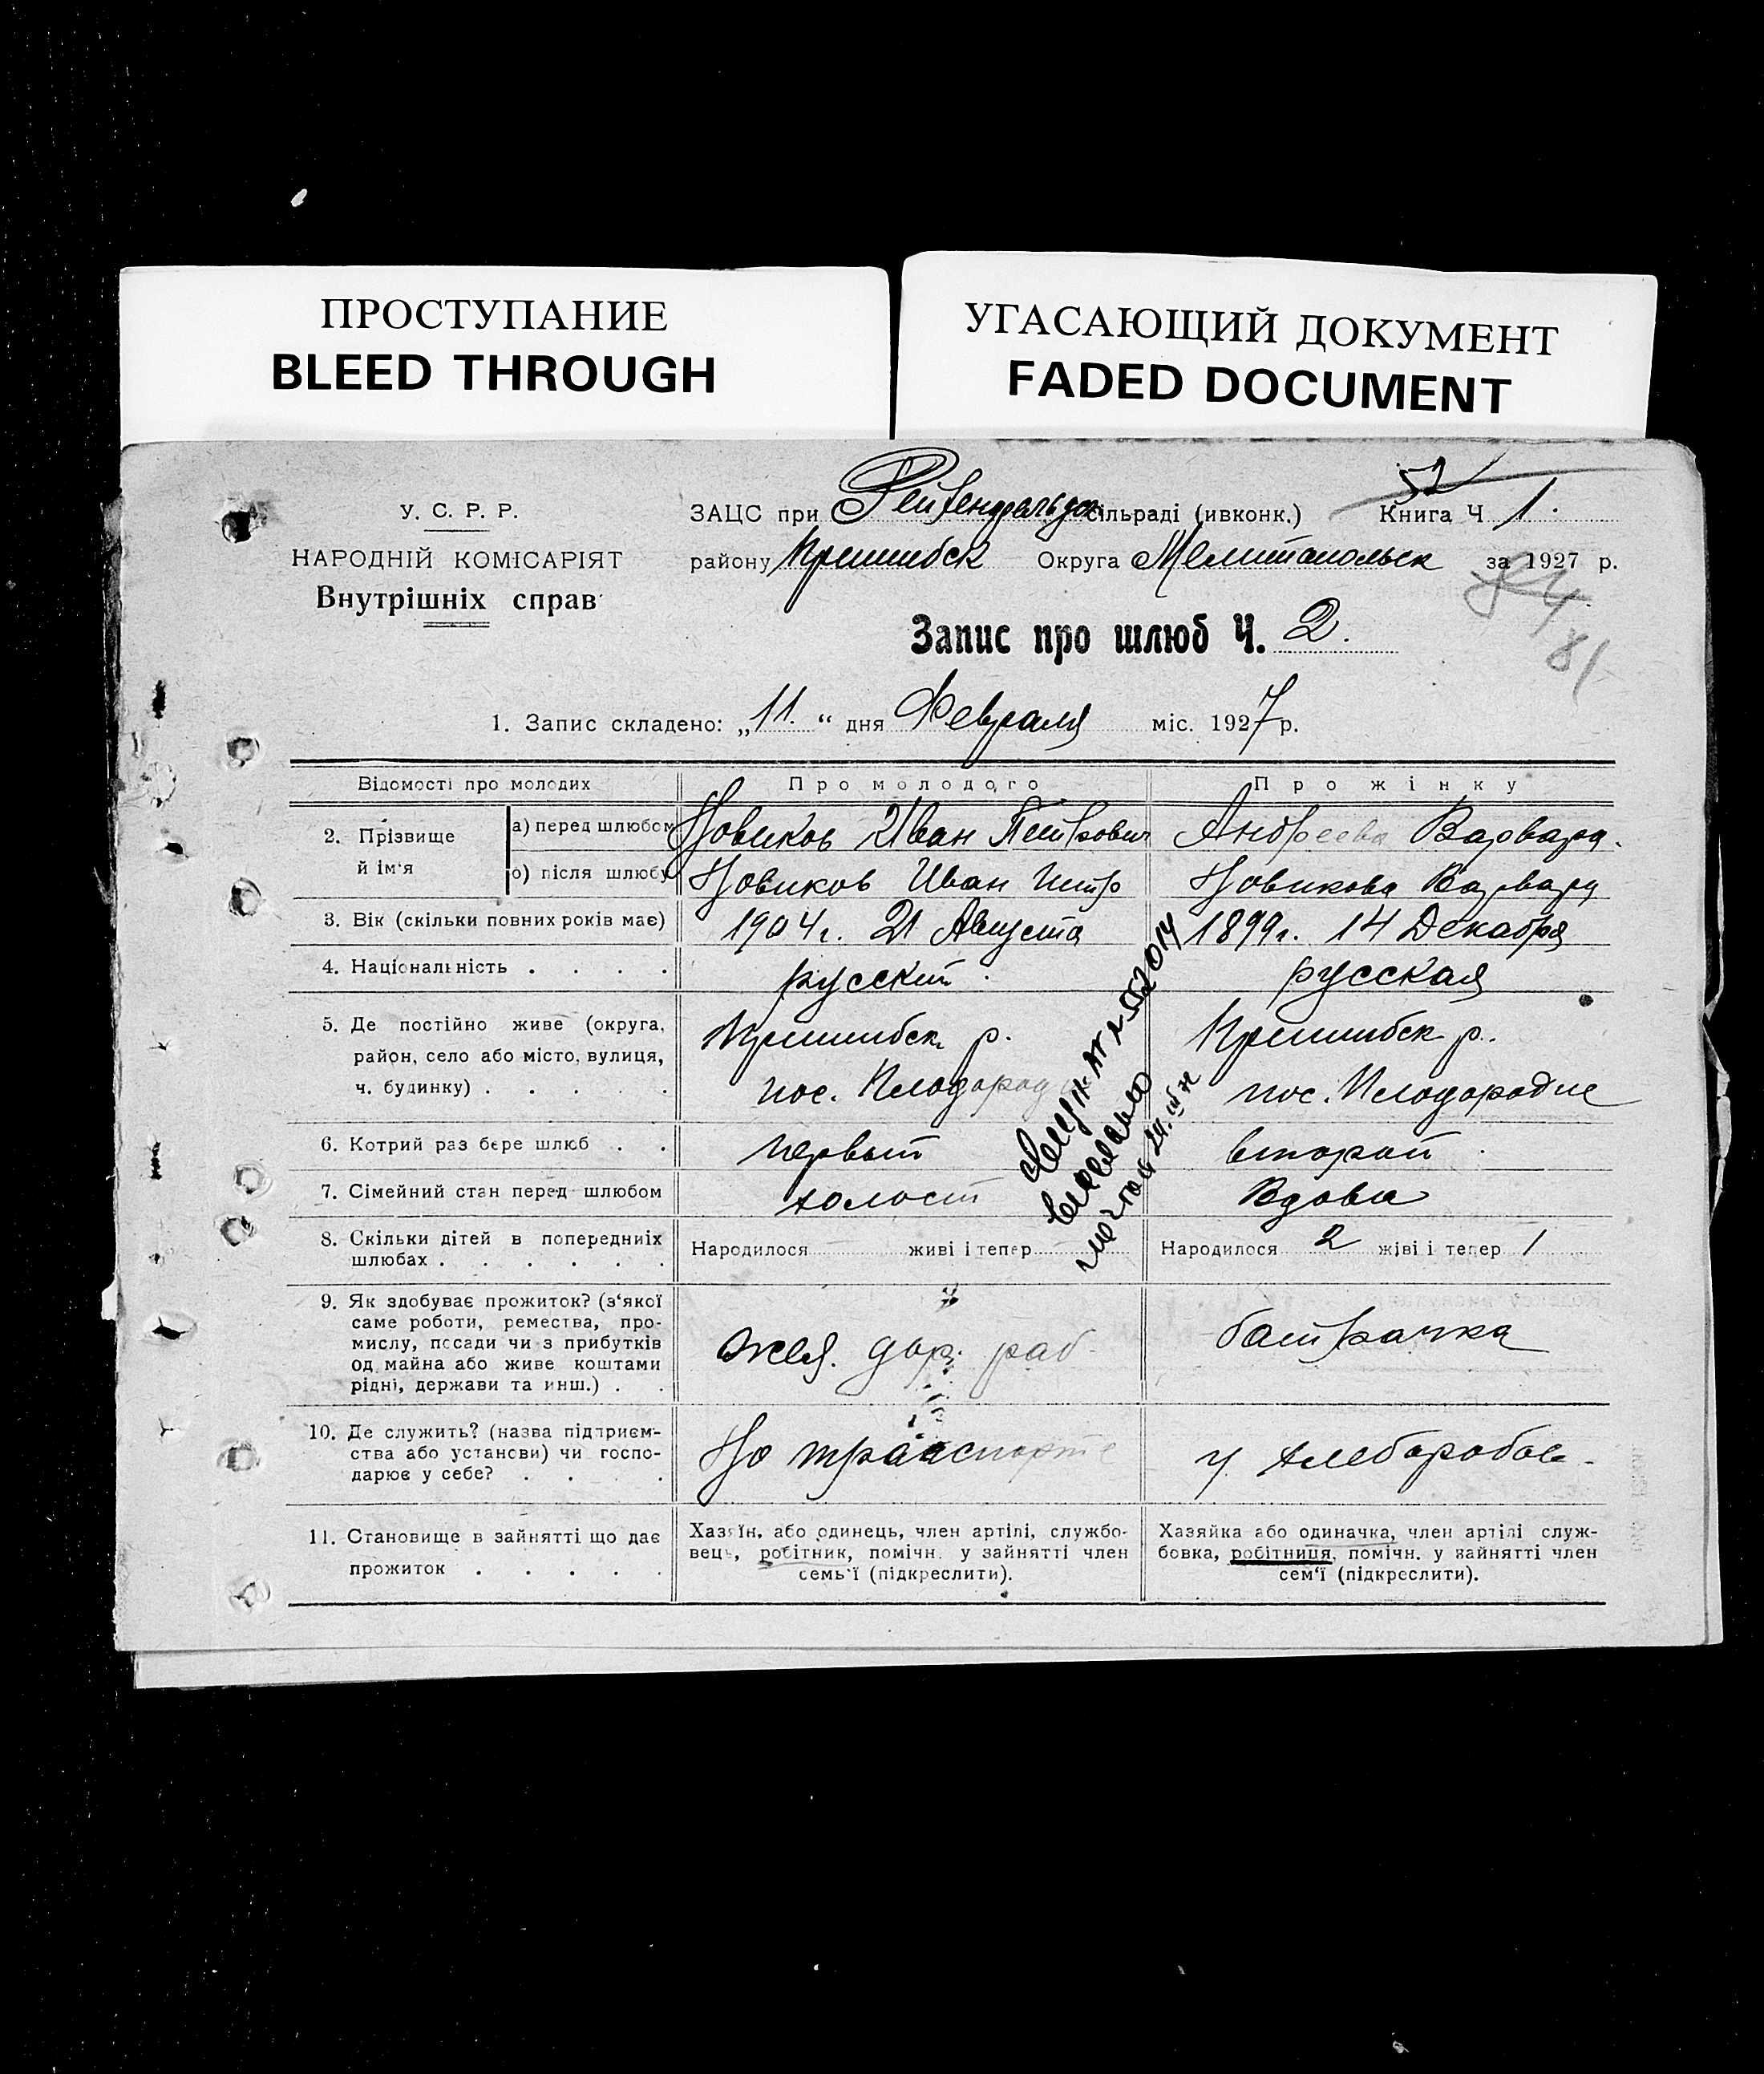 ПРОСТУПАНИЕ
BLEED THROUGH
УГАСАЮЩИЙ ДОКУМЕНТ
FADED DOCUMENT
У. С. Р. Р.
НАРОДНІЙ КОМІСАРІЯТ
Внутрішніх справ
52
ЗАЦС при Рейхенфельдск сільраді (ивконк.) Книга Ч 1.
району Пришибск Округа Мелитопольск за 1927 р.
84
81
Запис про шлюб Ч. 2.
1. Запис складено: „11." дня Февраля міс. 1927 р.
Відомості про молодих Про молодого Про жінку
2. Прізвище й ім'я
а) перед шлюбом Новиков Иван Петрович Андреева Варвара.
о) після шлюбу Новиков Иван Петр Новикова Варвара
3. Вік (скільки повних років має) 1904г. 21 Августа 1899г. 14 Декабря
4. Національність . . . . русский. русская
5. Де постійно живе (округа, Пришибск р. Пришибск р.
район, село або місто, вулиця,
ч. будинку) . . . . . пос. Плодород пос. Плодородие
6. Котрий раз бере шлюб . . первый второй
7. Сімейний стан перед шлюбом холост Вдова
8. Скільки дітей в попередниіх Народилося живі і тепер Народилося 2 жіві і тепер 1
шлюбах . . . . . .
9. Як здобуває прожиток? (з'якої
саме роботи, ремества, про-
мислу, посади чи з прибутків жел. дор. раб. батрачка
од майна або живе коштами
рідні, держави та инш.) . .
10. Де служить? (назва підприєм-
ства або установи) чи госпо- На транспорте у хлеборобов.
дарює у себе? . . . .
11. Становище в зайнятті що дає
прожиток . . . . .
Хазяїн, або одинець, член артілі, службо-
вець, робітник, помічн. у зайнятті член
семь'ї (підкреслити).
Хазяйка або одиначка, член артілі служ-
бовка, робітниця, помічн. у зайнятті член
сем'ї (підкреслити).